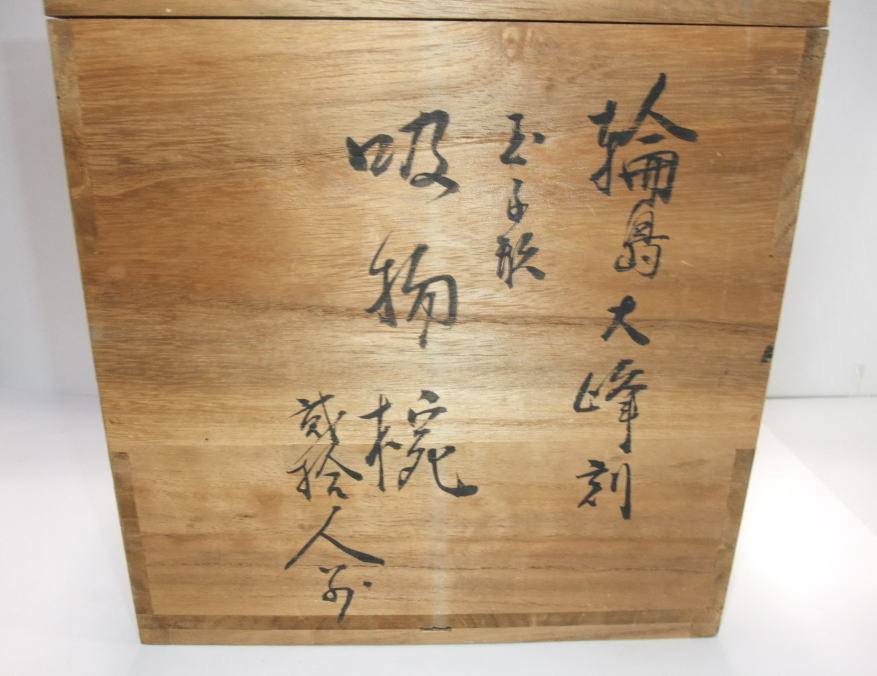 輪島大峰刻
玉子形
吸物椀
貮拾人前